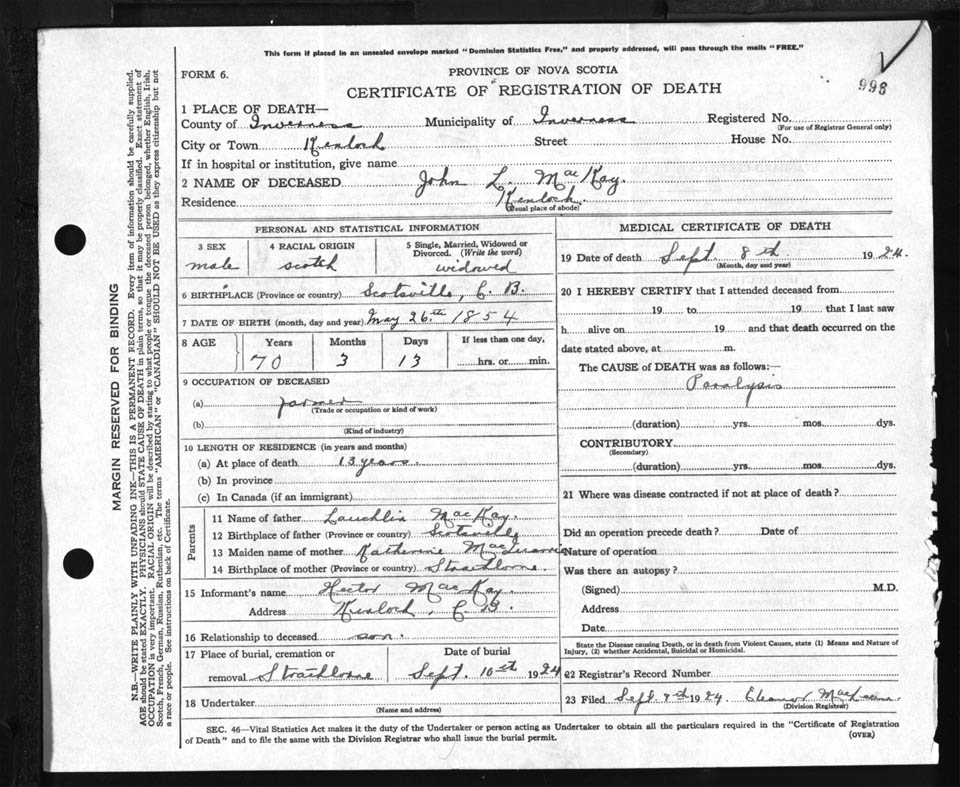 This form if placed in an unsealed envelope marked "Dominion Statistics Free," and properly addressed, will pass through the mails "FREE."
FORM 6.
PROVINCE OF NOVA SCOTIA
998
CERTIFICATE OF REGISTRATION OF DEATH
1 PLACE OF DEATH—
County of Inverness Municipality of Inverness Registered No.
(For use of Registrar General only)
City or Town Kenloch Street House No.
If in hospital or institution, give name
2 NAME OF DECEASED John L. MacKay.
Residence Kenloch
(Usual place of abode)
PERSONAL AND STATISTICAL INFORMATION
3 SEX 4 RACIAL ORIGIN 5 Single, Married, Widowed or Divorced. (Write the word)
male scotch widowed
6 BIRTHPLACE (Province or country) Scotsville, C. B.
7 DATE OF BIRTH (month, day and year) May 26th 1854
8 AGE Years Months Days If less than one day,
70 3 13 hrs. or min.
9 OCCUPATION OF DECEASED
(a) farmer
(Trade or occupation or kind of work)
(b)
(Kind of industry)
10 LENGTH OF RESIDENCE (in years and months)
(a) At place of death 13 years.
(b) In province
(c) In Canada (if an immigrant)
Parents
11 Name of father Lauchlin MacKay.
12 Birthplace of father (Province or country) Scotsville
13 Maiden name of mother Katherine
14 Birthplace of mother (Province or country) Strathlorne.
15 Informant's name Hector MacKay
Address Kenloch, C. B.
16 Relationship to deceased son.
17 Place of burial, cremation or removal Strathlorne
Date of burial Sept. 10th 1924
18 Undertaker
(Name and address)
MEDICAL CERTIFICATE OF DEATH
19 Date of death Sept. 8th 1924.
(Month, day and year)
20 I HEREBY CERTIFY that I attended deceased from
19 to 19 that I last saw
h alive on 19 and that death occurred on the
date stated above, at m.
The CAUSE of DEATH was as follows:—
Paralysis
(duration) yrs. mos. dys.
CONTRIBUTORY
(Secondary)
(duration) yrs. mos. dys.
21 Where was disease contracted if not at place of death?
Did an operation precede death? Date of
Nature of operation
Was there an autopsy?
(Signed) M.D.
Address
Date
State the Disease causing Death, or in death from Violent Causes, state (1) Means and Nature of
Injury, (2) whether Accidental, Suicidal or Homicidal.
22 Burial Record Number
23 Filed Sept. 1924 Eleanor
(Division Registrar)
SEC. 46—Vital Statistics Act makes it the duty of the Undertaker or person acting as Undertaker to obtain all the particulars required in the "Certificate of Registration
of Death" and to file the same with the Division Registrar who shall issue the burial permit.
(OVER)
MARGIN RESERVED FOR BINDING
N.B.—WRITE PLAINLY WITH UNFADING INK—THIS IS A PERMANENT RECORD. Every item of information should be carefully supplied.
AGE should be stated EXACTLY. PHYSICIANS should STATE CAUSE OF DEATH in plain terms, so that it may be properly classified. Exact statement of
OCCUPATION is very important. RACIAL ORIGIN will be described by stating to what people or tongue the deceased person belonged, whether English, Irish,
Scotch, French, German, Russian, Ruthenian, etc. The terms "AMERICAN" or "CANADIAN" SHOULD NOT BE USED as they express citizenship but not
a race or people. See instructions on back of Certificate.